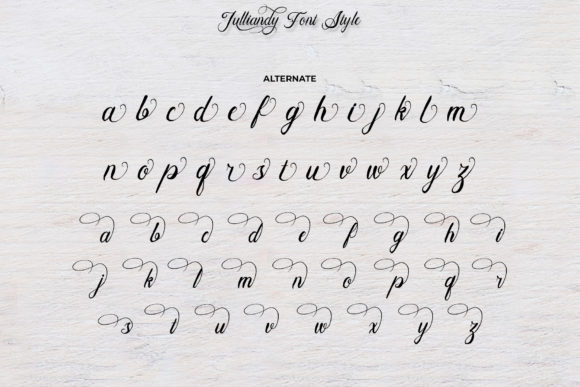 Julliandy Font Style
ALTERNATE
a b c d e f g h i j k l m
n o p q r s t u v w x y z
a b c d e f g h i
j k l m n o p q r
s t u v w x y z